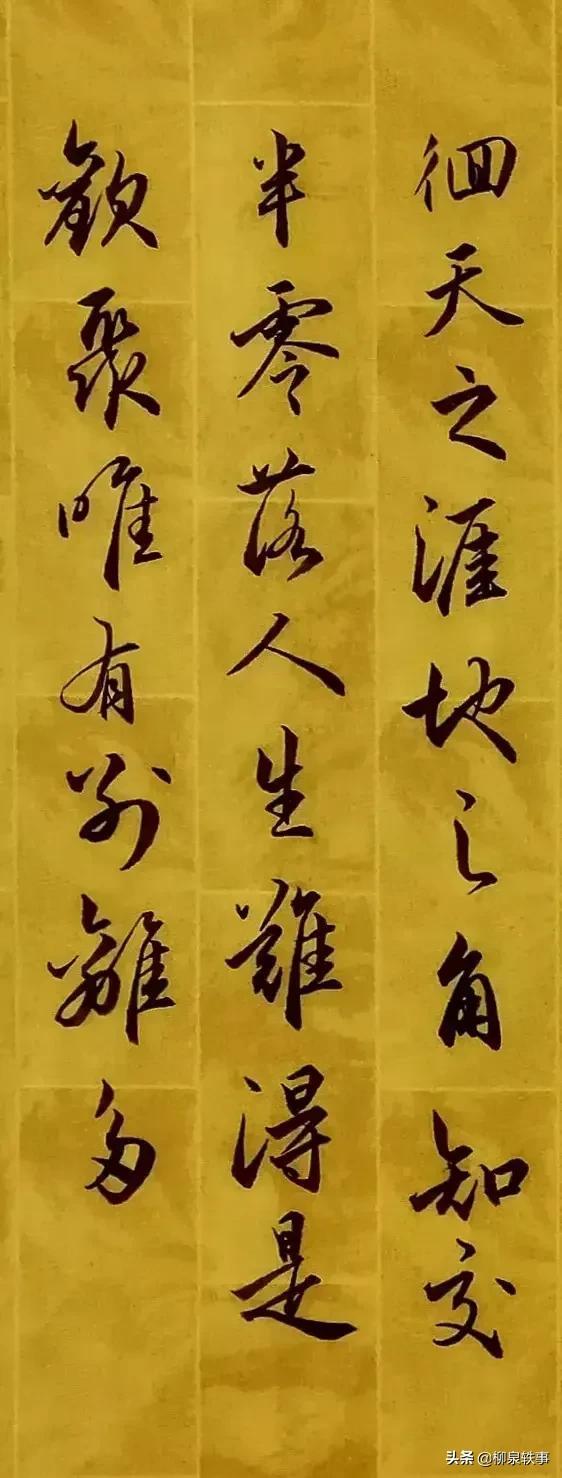 徊天之涯地之角知交
半零落人生難得是
歡聚唯有別離多
头条 @柳泉轶事